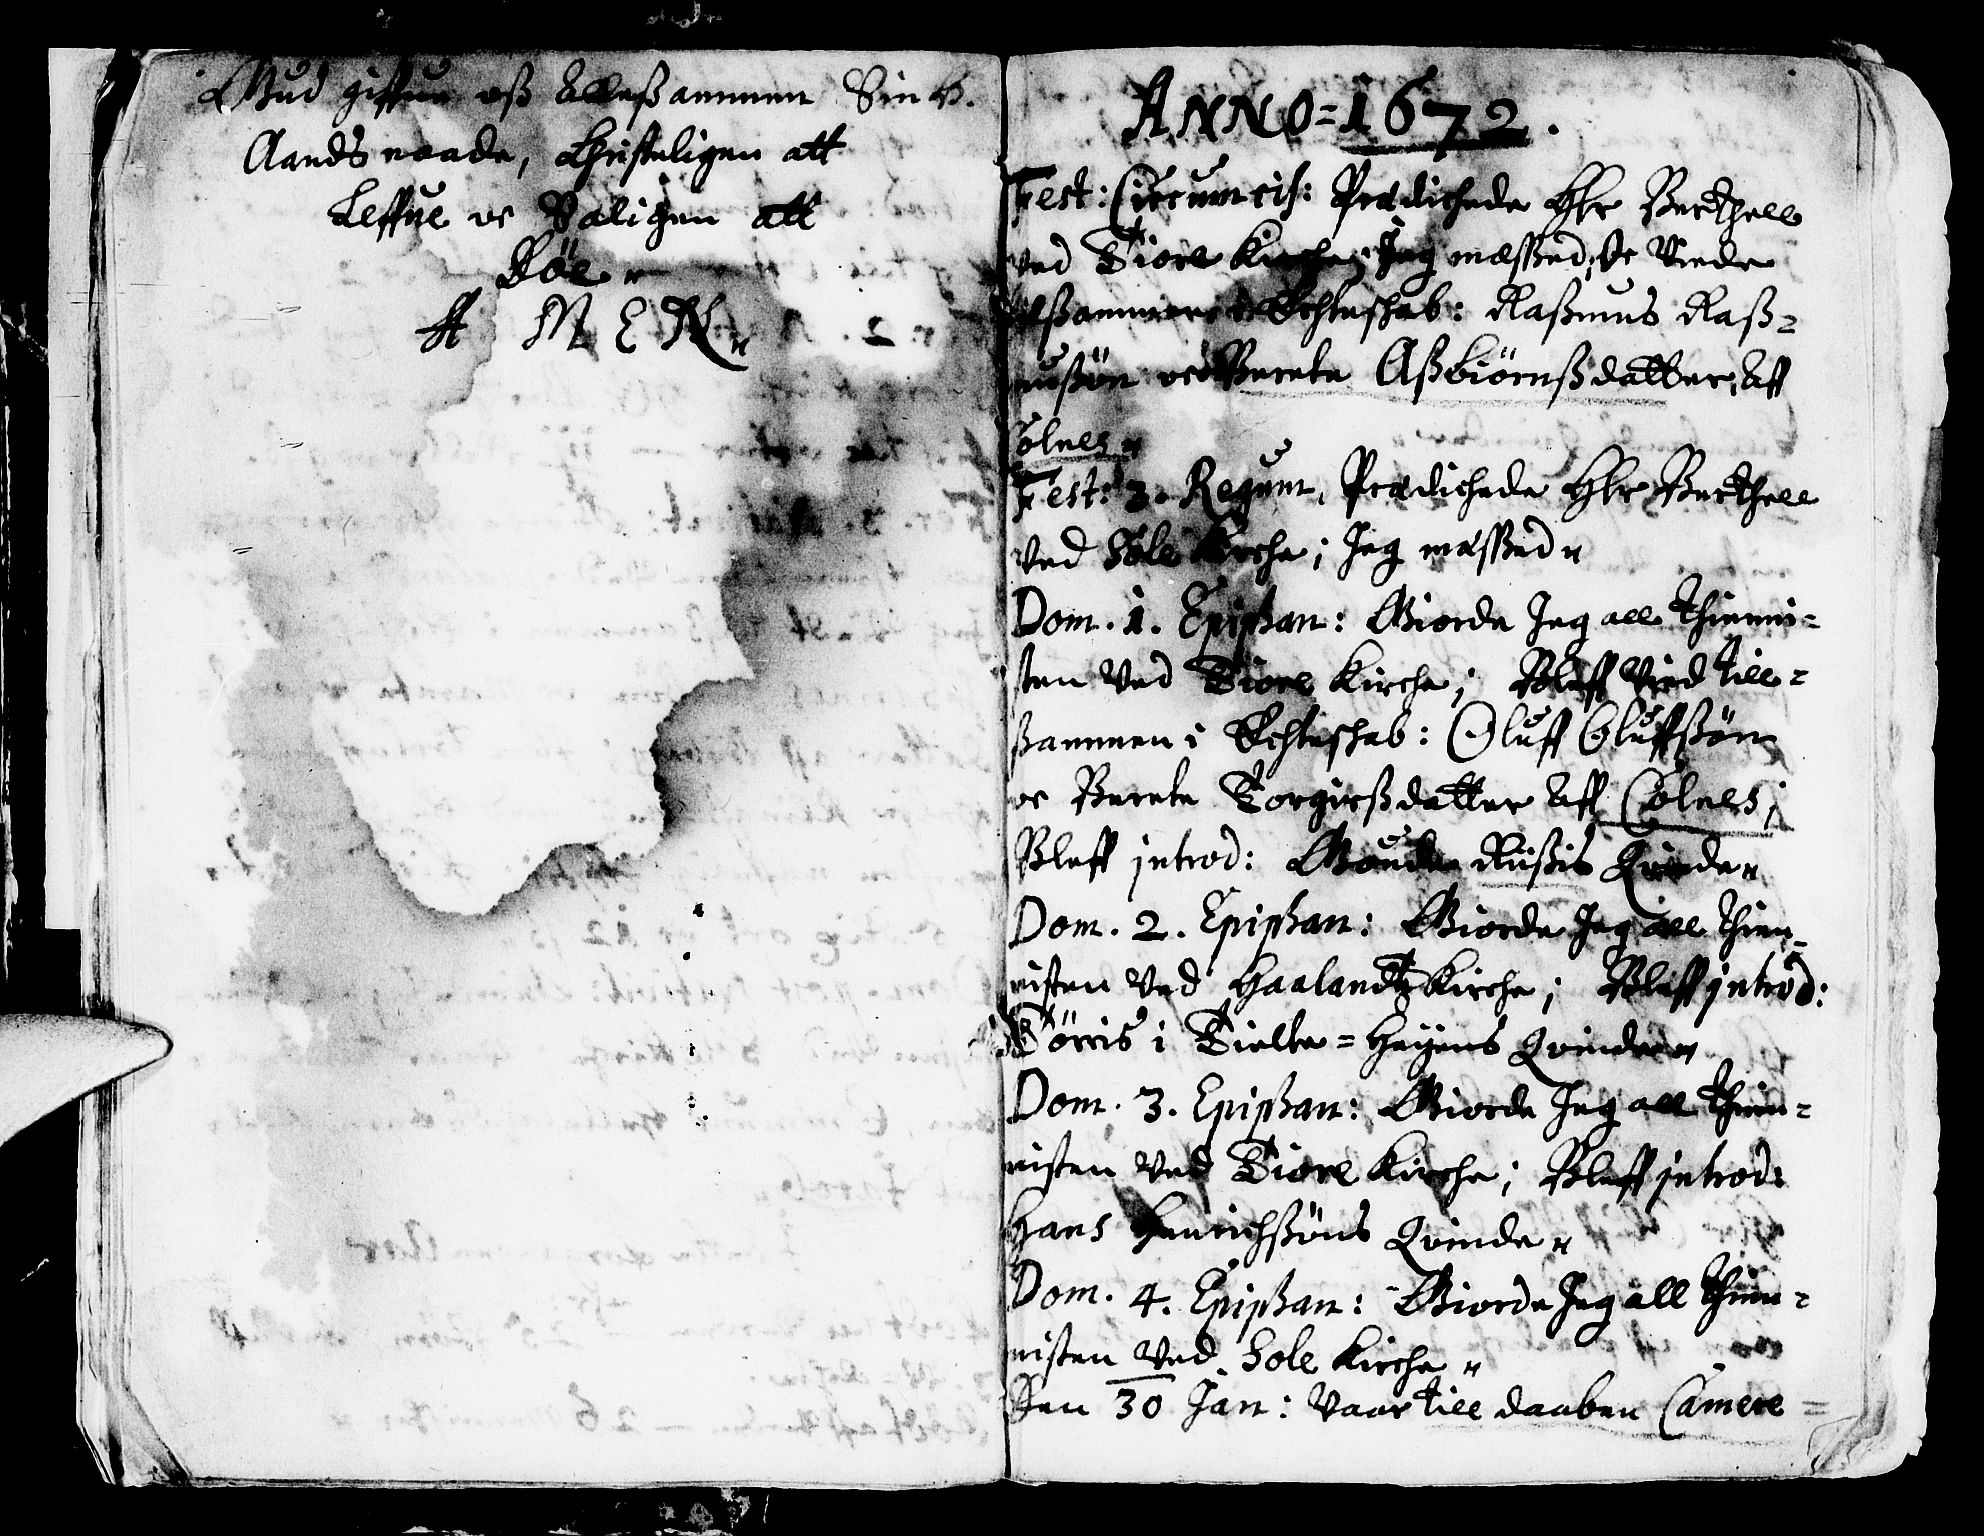 Gud giffue oß alleßammen Sin H.
Aands naade, Christeligen att
Leffue oc Saligen att
Döe.
A M E N
ANNO = 1672.
Fest: Circumcis: Prædichede Hr Berthell
ved Tiore Kirche; Jeg messed; oc Viede
tilßammen i Echteschab: Raßmus Raß=
mußön oc Berete Aßbiörnßdatter, aff
Colnes
Fest: 3. Regum, Prædichede Hr Berthell
ved Sole Kirche; Jeg messed
Dom. 1. Epiphan: Giorde Jeg all thienni=
sten ved Tiore Kirche; Bleff Vied till=
ßammen i Echteschab: Oluff Oluffßön
oc Berete Torgirßdatter aff Colnes;
Bleff introd: Gaude Rüßis Qvinde
Dom. 2. Epiphan: Giorde Jeg all thien=
nisten ved Haalandtz Kirche; Bleff introd:
Törris i Tielte=Høyens Qvinde
Dom. 3. Epiphan: Giorde Jeg all thien=
nisten ved Tiore Kirche; Bleff introd:
Hans Henrichßöns Qvinde
Dom. 4. Epiphan: Giorde Jeg all thien=
nisten ved Sole Kirche
Den 30 Jan: Vaar till daaben Camere=